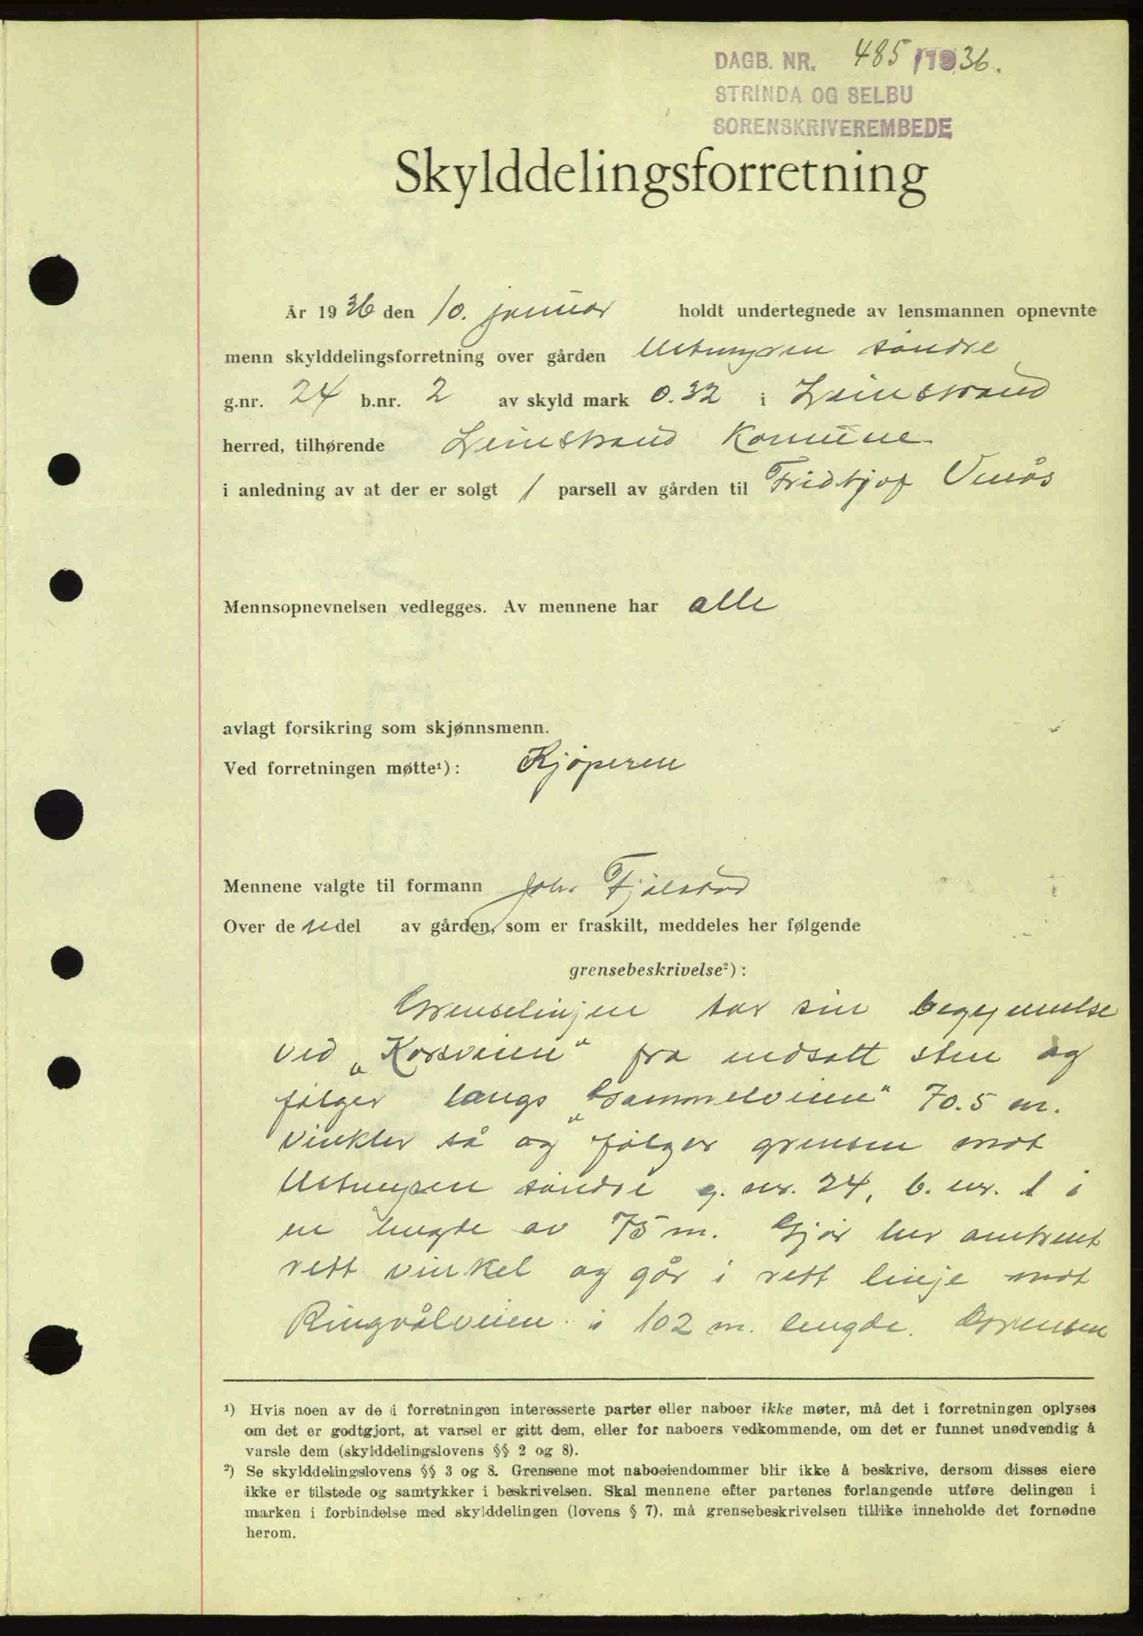 DAGB. NR. 485/1936.
STRINDA OG SELBU
SORENSKRIVEREMBEDE
Skylddelingsforretning
År 1936 den 10. januar holdt undertegnede av lensmannen opnevnte
menn skylddelingsforretning over gården Ustmyren søndre
g.nr. 24 b.nr. 2 av skyld mark 0.32 i Leinstrand
herred, tilhørende Leinstrand Komune
i anledning av at der er solgt 1 parsell av gården til Fridtjof
Mennsopnevnelsen vedlegges. Av mennene har alle
avlagt forsikring som skjønnsmenn.
Ved forretningen møtte¹): Kjøperen
Mennene valgte til formann John Fjølstad
Over de n del av gården, som er fraskilt, meddeles her følgende
grensebeskrivelse²):
Grenselinjen tar sin begynnelse
ved „Korsveien" fra nedsatt sten og
følger langs „Gammelveien" 70.5 m.
vinkler så og følger grensen mot
Ustmyren søndre g. nr. 24, b. nr. 1 i
en lengde av 75 m. Gjør her omtrent
rett vinkel og går i rett linje mot
Ringvålveien i 102 m. lengde. Grensen
¹) Hvis noen av de i forretningen interesserte parter eller naboer ikke møter, må det i forretningen oplyses
om det er godtgjort, at varsel er gitt dem, eller for naboers vedkommende, om det er funnet unødvendig å
varsle dem (skylddelingslovens §§ 2 og 8).
²) Se skylddelingslovens §§ 3 og 8. Grensene mot naboeiendommer blir ikke å beskrive, dersom disses eiere
ikke er tilstede og samtykker i beskrivelsen. Skal mennene efter partenes forlangende utføre delingen i
marken i forbindelse med skylddelingen (lovens § 7), må grensebeskrivelsen tillike inneholde det fornødne
herom.